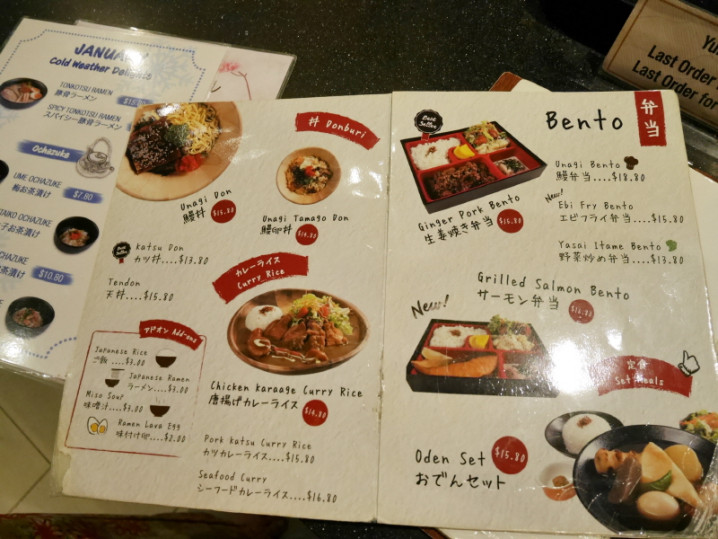 JANUARY
Cold Weather Delights
TONKOTSU RAMEN
豚骨ラーメン
SPICY TONKOTSU RAMEN
スパイシー豚骨ラーメン
Ochazuke
UME OCHAZUKE
梅お茶漬け
$7.80
TAIKO OCHAZUKE
子お茶漬け
$10.80
丼 Donburi
Unagi Don
鰻丼
Unagi Tamago Don
鰻卵丼
Best Seller
Katsu Don
カツ丼....$13.80
Tendon
天丼....$15.80
カレーライス
Curry Rice
アドオン Add-ons
Japanese Rice
ご飯 ....$3.00
Japanese Ramen
ラーメン....$3.00
Miso Soup
味噌汁....$3.00
Ramen Lava Egg
味付け卵....$2.00
Chicken Karaage Curry Rice
唐揚げカレーライス
Pork Katsu Curry Rice
カツカレーライス....$15.80
Seafood Curry
シーフードカレーライス....$16.80
Best Seller
Bento
弁当
Ginger Pork Bento
生姜焼き弁当
Unagi Bento
鰻弁当....$18.80
New!
Ebi Fry Bento
エビフライ弁当....$15.80
Yasai Itame Bento
野菜炒め弁当....$13.80
New!
Grilled Salmon Bento
サーモン弁当
定食
Set Meals
Oden Set
おでんセット
$15.80
YU
Last Order
Last Order for